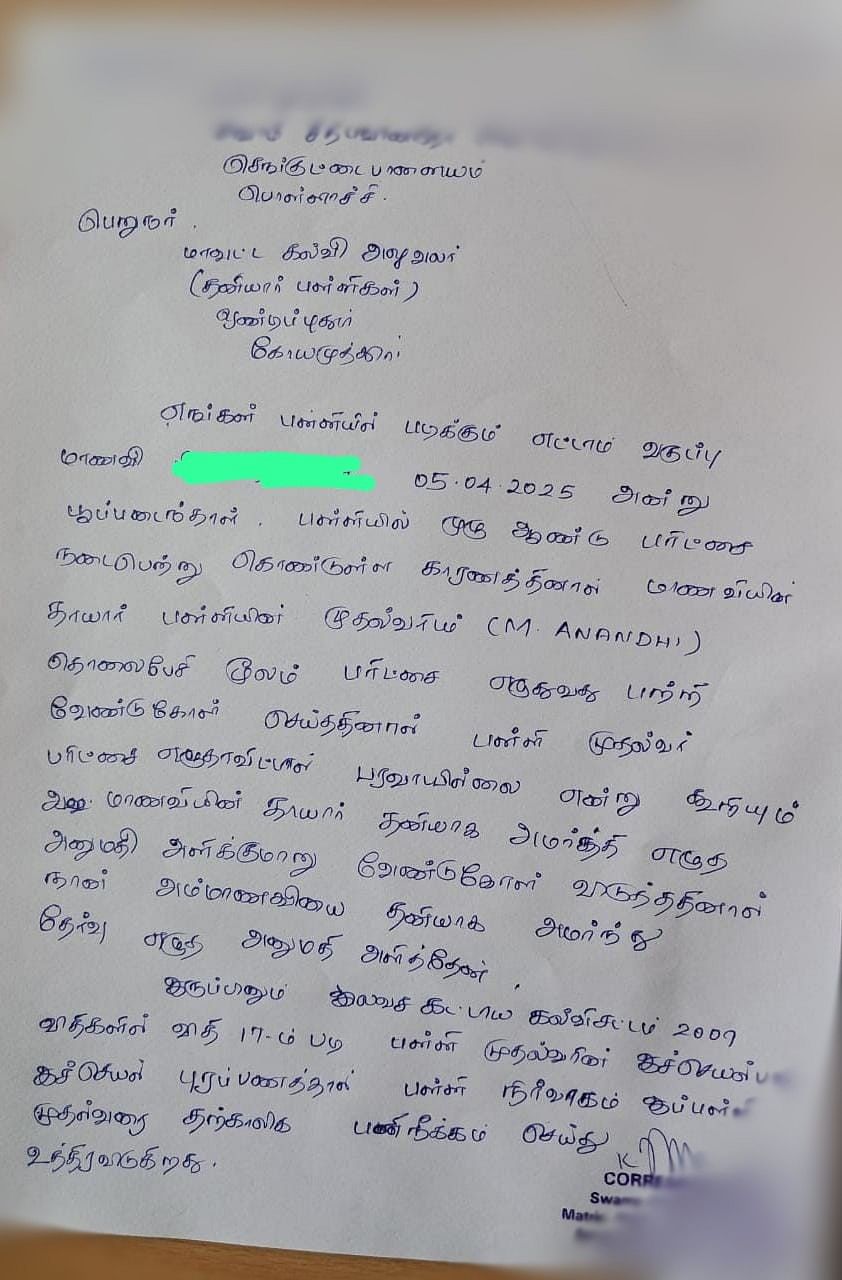 செங்குட்டைபாளையம்
பொள்ளாச்சி.
பெறுநர்.
மாவட்ட கல்வி அலுவலர்
(தனியார் பள்ளிகள்)
கோயமுத்தூர்
எங்கள் பள்ளியில் படிக்கும் எட்டாம் வகுப்பு
மாணவி 05.04.2025 அன்று
பூப்படைந்தாள். பள்ளியில் முழு ஆண்டு பரிட்சை
நடைபெற்று கொண்டுள்ள காரணத்தினால் மாணவியின்
தாயார் பள்ளியின் முதல்வரிடம் (M. ANANDHI)
தொலைபேசி மூலம் பரிட்சை எழுதுவது பற்றி
வேண்டுகோள் செய்ததினால் பள்ளி முதல்வர்
பரிட்சை எழுதாவிட்டால் பரவாயில்லை என்று கூறியும்
மாணவியின் தாயார் தனியாக அமர்த்தி எழுத
அனுமதி அளிக்குமாறு வேண்டுகோள் விடுத்ததினால்
நான் அம்மாணவியை தனியாக அமர்ந்து
தேர்வு எழுத அனுமதி அளித்தேன்.
இருப்பினும் இலவச கட்டாய கல்விசட்டம் 2009
விதிகளின் விதி 17-ம் படி பள்ளி முதல்வரின்
இச்செயல் புரப்பணத்தால் பள்ளி நிர்வாகம்
முதல்வரை தற்காலிக பணிநீக்கம் செய்து
உத்திரவிடுகிறது.